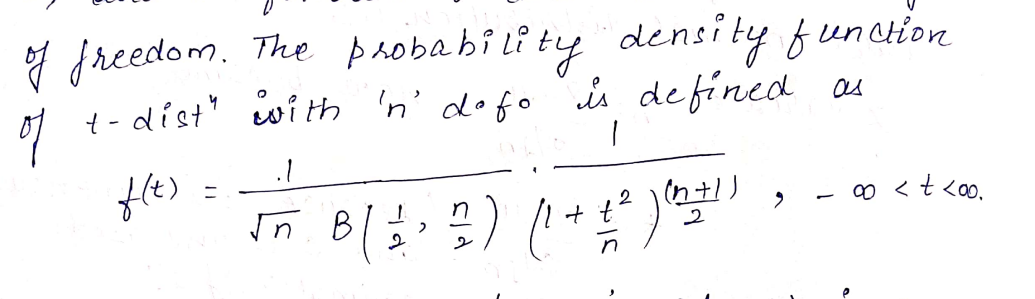 of freedom. The probability density function
of t-distⁿ with 'n' d.f. is defined as
f(t) = 1 / (√n B(1/2, n/2)) · 1 / (1 + t²/n)^((n+1)/2) , -∞ < t < ∞.